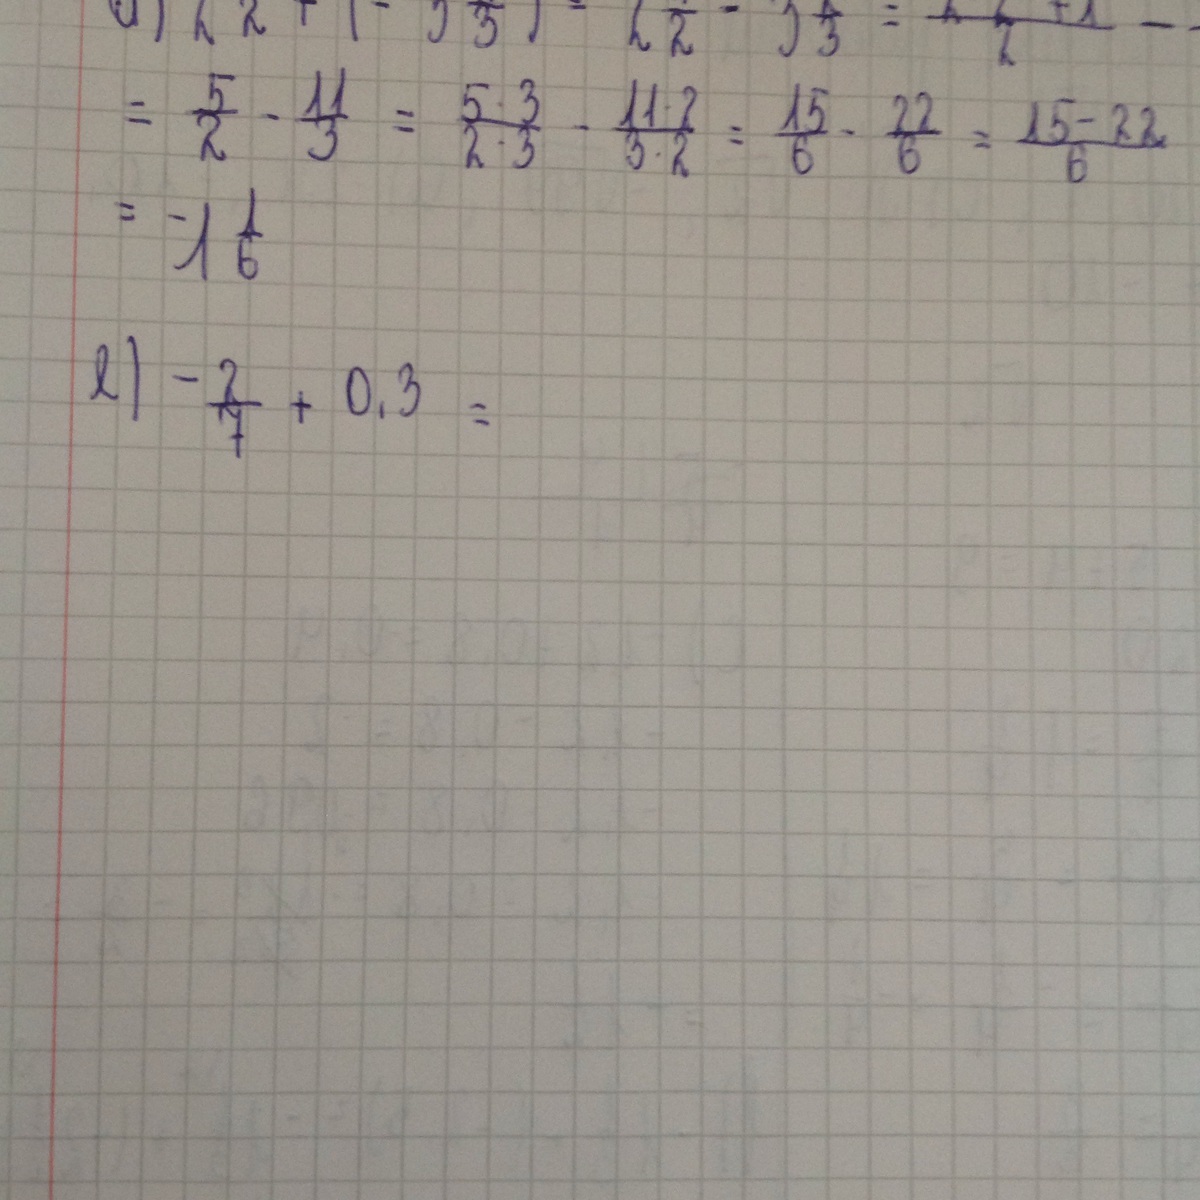 = 5/2 - 11/3 = 5·3/2·3 - 11·2/3·2 = 15/6 - 22/6 = 15-22/6
= -1 1/6
e) -2/7 + 0.3 =